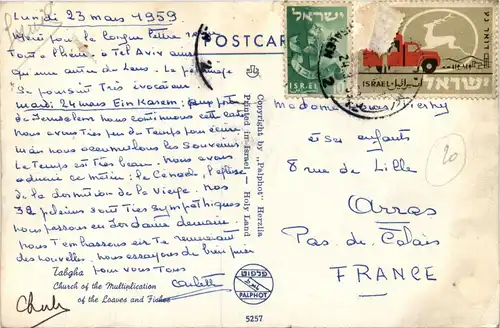 Lundi 23 mars 1959
Merci pour la longue lettre
Toute l'heure à Tel Aviv
qu'une autre de Lens. Le pèlerinage
se poursuit très évocateur.
mardi 24 mars Ein Karem;
de Jerusalem nous continuons cette carte
nous avons très peu de temps pour écrire
mais nous accumulons les souvenirs
Le temps est très beau. Nous avons
admiré ce matin: le Cénacle, l'église
de la dormition de la Vierge. Nos
32 pèlerins sont très sympathiques
nous passons en Jordanie demain.
nous t'embrassons en te remerciant
des nouvelles. nous essayons de bien prier
pour vous tous
Tabgha
Church of the Multiplication
of the Loaves and Fishes
POSTCARD
Copyright by „Palphot" Herzlia
Printed in Israel — Holy Land
PALPHOT
5257
ישראל
ISRAEL
ISRAEL
ישראל
Madame
et ses enfants
8 rue de Lille
Arras
Pas-de-Calais
FRANCE
20